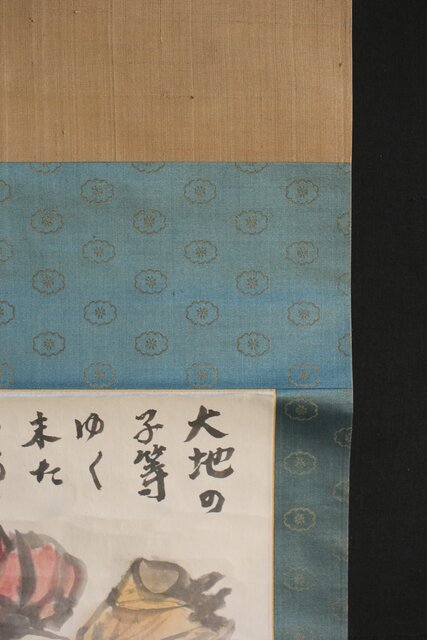 大地の
子等
ゆく
末た